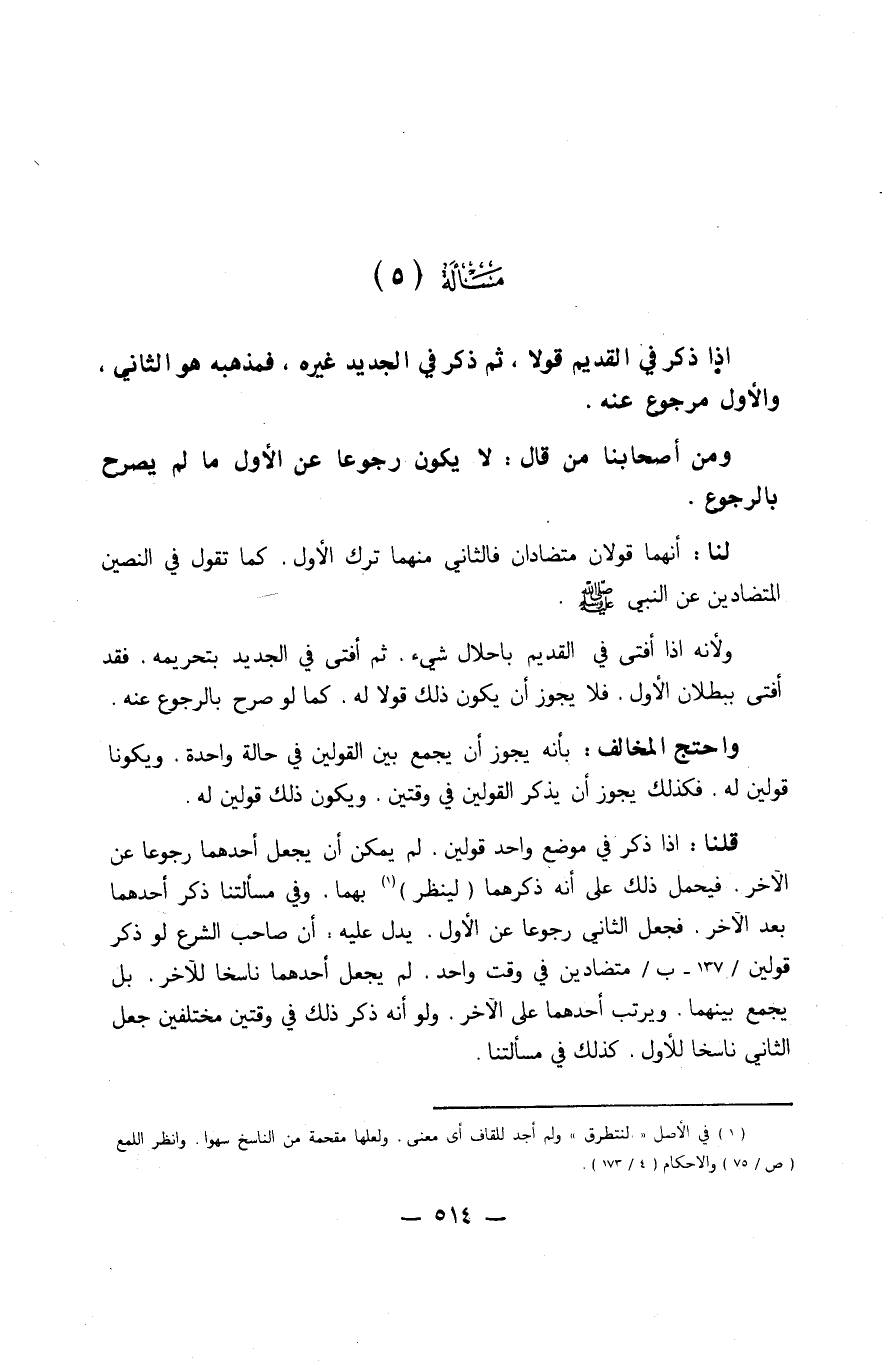 مسألة (٥)
اذا ذكر في القديم قولا ، ثم ذكر في الجديد غيره ، فمذهبه هو الثاني ،
والأول مرجوع عنه .
ومن أصحابنا من قال : لا يكون رجوعا عن الأول ما لم يصرح
بالرجوع .
لنا : أنهما قولان متضادان فالثاني منهما ترك الأول . كما تقول في النصين
المتضادين عن النبي ﷺ .
ولأنه اذا أفتى في القديم باحلال شيء . ثم أفتى في الجديد بتحريمه . فقد
أفتى ببطلان الأول . فلا يجوز أن يكون ذلك قولا له . كما لو صرح بالرجوع عنه .
واحتج المخالف : بأنه يجوز أن يجمع بين القولين في حالة واحدة . ويكونا
قولين له . فكذلك يجوز أن يذكر القولين في وقتين . ويكون ذلك قولين له .
قلنا : اذا ذكر في موضع واحد قولين . لم يمكن أن يجعل أحدهما رجوعا عن
الآخر . فيحمل ذلك على أنه ذكرهما ( لينظر )(١) بهما . وفي مسألتنا ذكر أحدهما
بعد الآخر . فجعل الثاني رجوعا عن الأول . يدل عليه : أن صاحب الشرع لو ذكر
قولين / ١٣٧ - ب / متضادين في وقت واحد . لم يجعل أحدهما ناسخا للآخر . بل
يجمع بينهما . ويرتب أحدهما على الآخر . ولو أنه ذكر ذلك في وقتين مختلفين جعل
الثاني ناسخا للأول . كذلك في مسألتنا .
( ١ ) في الأصل « لنتطرق » ولم أجد للقاف أى معنى . ولعلها مقحمة من الناسخ سهوا . وانظر اللمع
( ص / ٧٥ ) والاحكام ( ٤ / ١٧٣ ) .
— ٥١٤ —